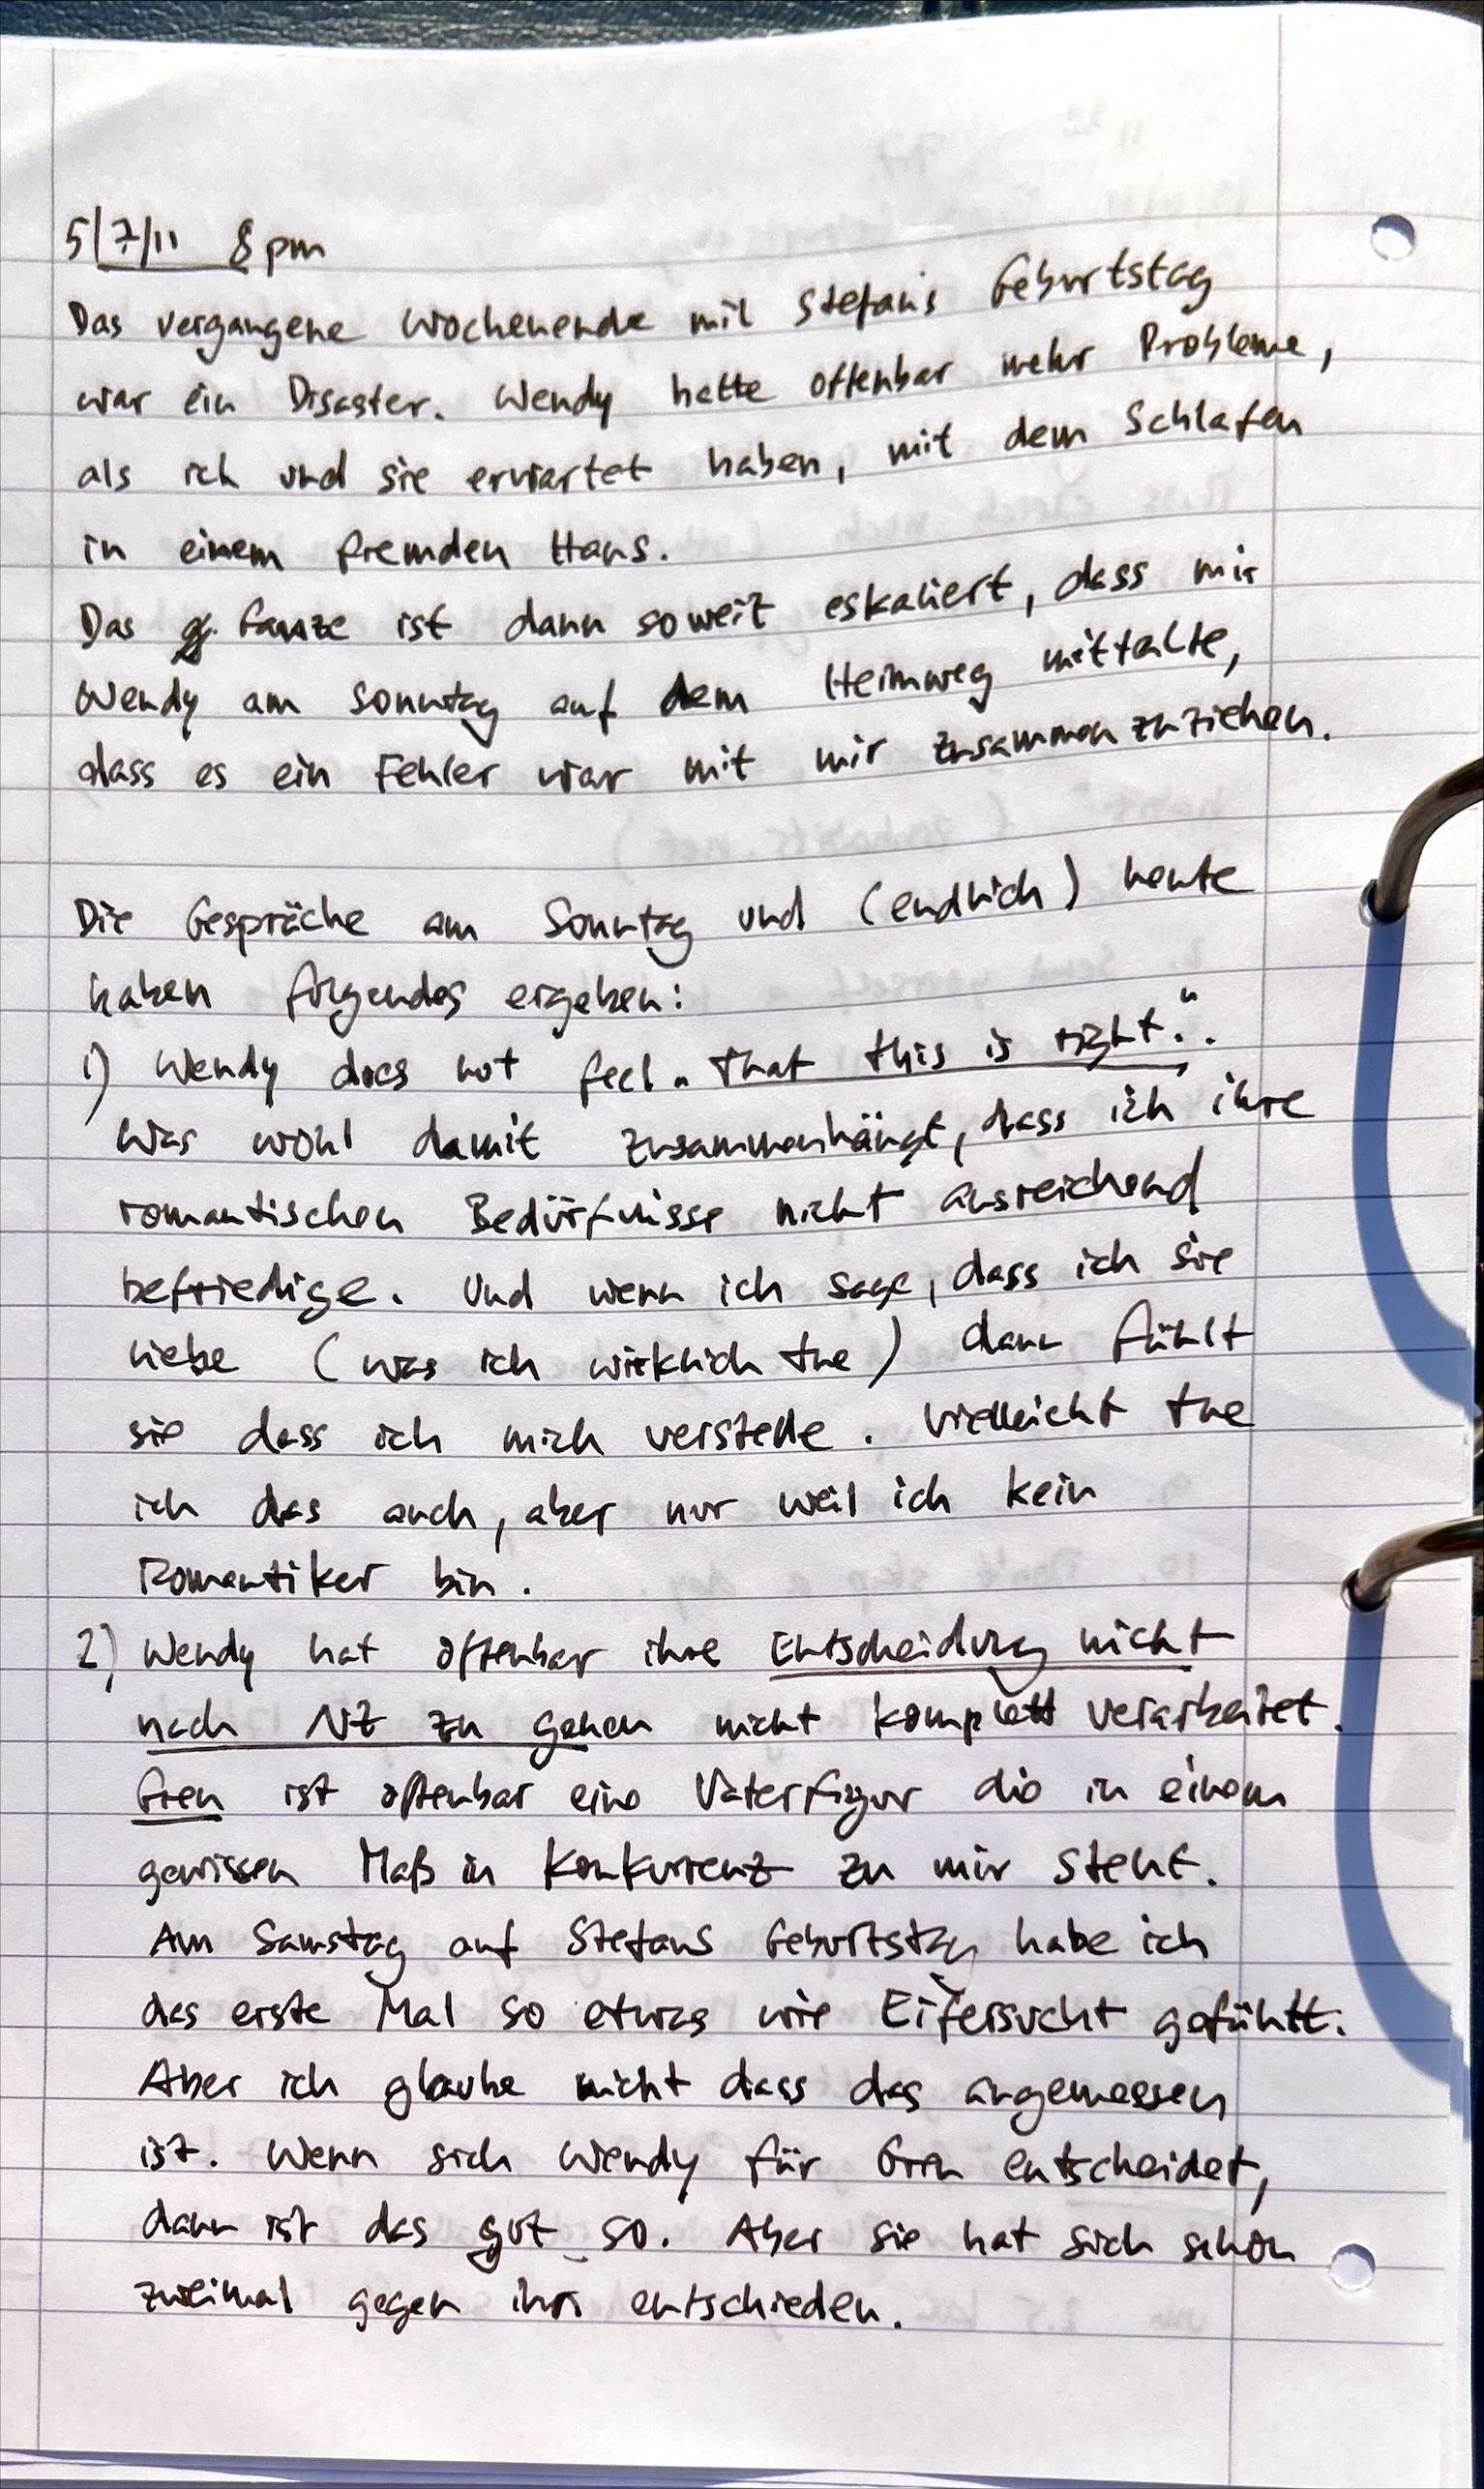 5/7/11 8pm
Das vergangene Wochenende mit Stefans Geburtstag
war ein Disaster. Wendy hatte offenbar mehr Probleme,
als ich und sie erwartet haben, mit dem Schlafen
in einem fremden Haus.
Das Ganze ist dann soweit eskaliert, dass mir
Wendy am Sonntag auf dem Heimweg mitteilte,
dass es ein Fehler war mit mir zusammenzuziehen.
Die Gespräche am Sonntag und (endlich) heute
haben folgendes ergeben:
1) Wendy does not feel „that this is right.“.
Was wohl damit zusammenhängt, dass ich ihre
romantischen Bedürfnisse nicht ausreichend
befriedige. Und wenn ich sage, dass ich sie
liebe (was ich wirklich tue) dann fühlt
sie dass ich mich verstelle. Vielleicht tue
ich das auch, aber nur weil ich kein
Romantiker bin.
2) Wendy hat offenbar ihre Entscheidung nicht
nach NZ zu gehen nicht komplett verarbeitet.
ist offenbar eine Vaterfigur die in einem
gewissen Maß in Konkurrenz zu mir steht.
Am Samstag auf Stefans Geburtstag habe ich
das erste Mal so etwas wie Eifersucht gefühlt.
Aber ich glaube nicht dass das angemessen
ist. Wenn sich Wendy für entscheidet,
dann ist das gut so. Aber sie hat sich schon
zweimal gegen ihn entschieden.